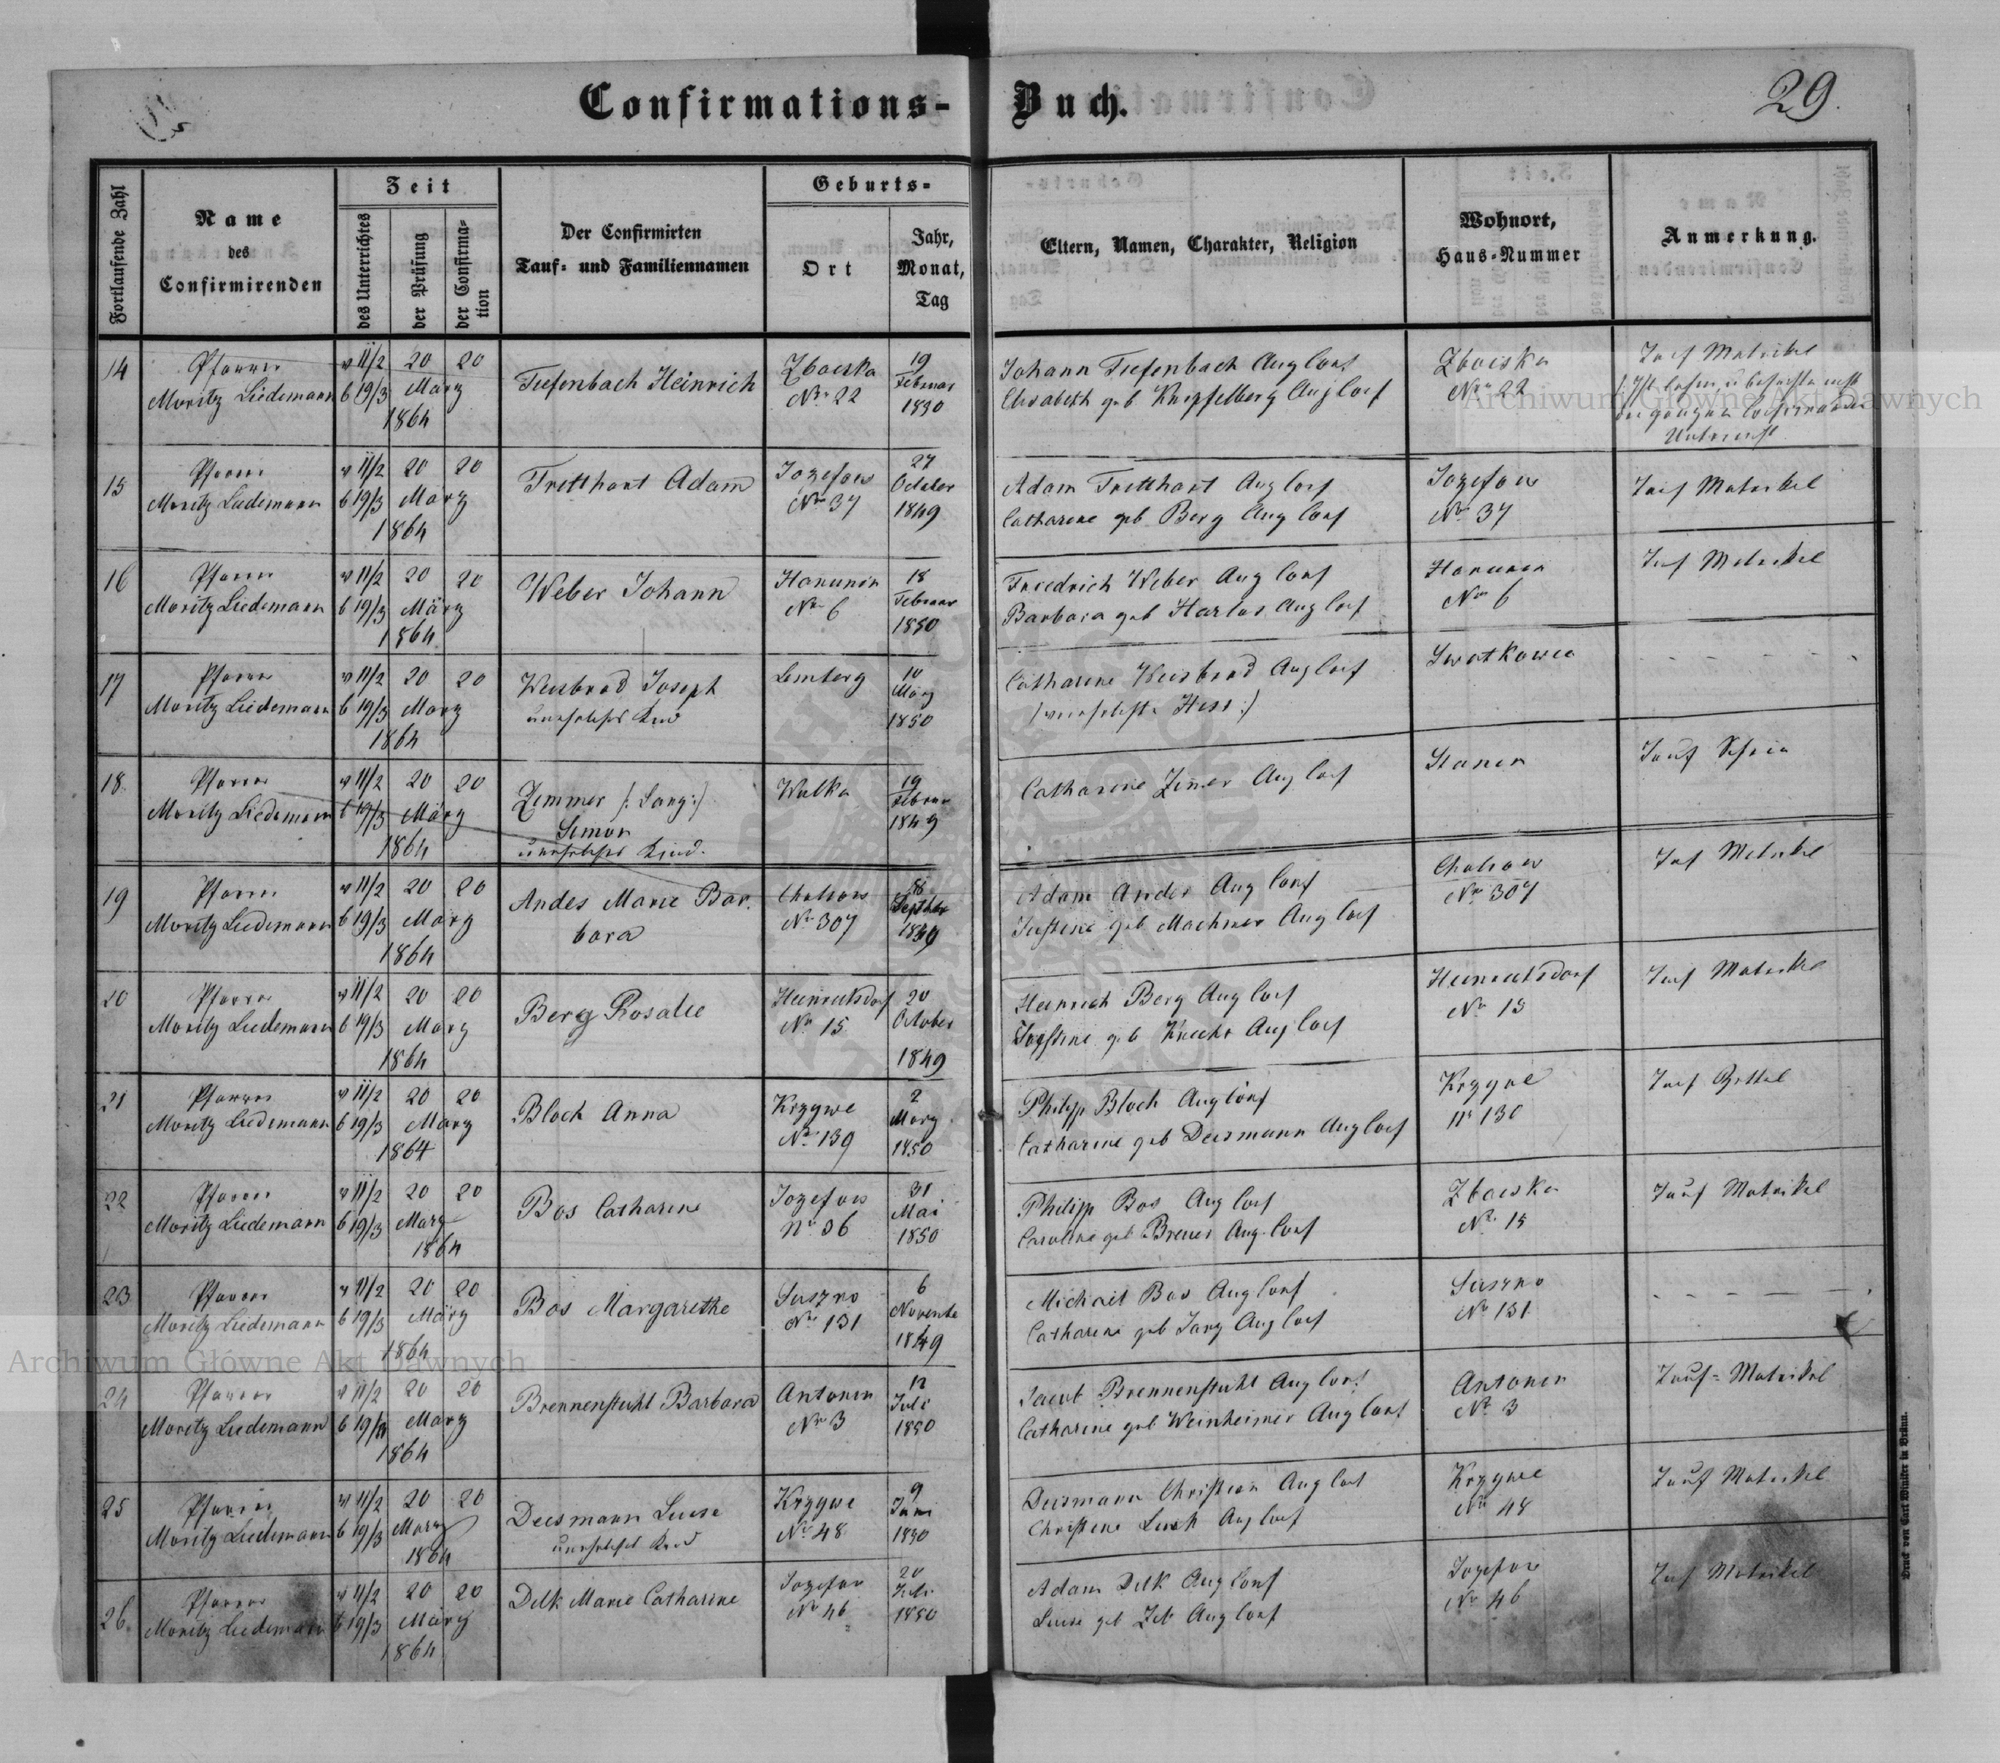 Confirmations-Buch.
29.
Fortlaufende Zahl
Name
des
Confirmirenden
Zeit
des Unterrichtes
der Prüfung
der Confirma-
tion
Der Confirmirten
Tauf- und Familiennamen
Geburts-
Ort
Jahr,
Monat,
Tag
Eltern, Namen, Charakter, Religion
Wohnort,
Haus-Nummer
Anmerkung.
14
Pfarrer
Moritz Liedemann
v 11/2
b 19/3
20 20
März
1864
Tiefenbach Heinrich
Zboiska
Nro 22
19
Februar
1850
Johann Tiefenbach Aug Conf
Elisabeth geb Knipfelberg Aug Conf
Zboiska
Nro 22
Tauf Matrikel
Unterricht
15
Pfarrer
Moritz Liedemann
v 11/2
b 19/3
20 20
März
1864
Tretthart Adam
Jozefow
Nro 37
27
October
1849
Adam Tretthart Aug Conf
Catharine geb Berg Aug Conf
Jozefow
Nro 37
Tauf Matrikel
16
Pfarrer
Moritz Liedemann
v 11/2
b 19/3
20 20
März
1864
Weber Johann
Hanunin
Nro 6
18
Februar
1850
Friedrich Weber Aug Conf
Barbara geb Harlos Aug Conf
Hanunin
Nro 6
Tauf Matrikel
17
Pfarrer
Moritz Liedemann
v 11/2
b 19/3
20 20
März
1864
Weisbrod Joseph
unehelich Kind
Lemberg
10
März
1850
Catharine Weisbrod Aug Conf
/verehelichte Hess:/
Sewatkowce
18.
Pfarrer
Moritz Liedemann
v 11/2
b 19/3
20 20
März
1864
Zimmer /:Lang:/
Simon
uneheliches Kind.
Wulka
19
Februar
1849
Catharine Zimer Aug Conf
Stanin
Tauf Schein
19
Pfarrer
Moritz Liedemann
v 11/2
b 19/3
20 20
März
1864
Andes Marie Bar.
bara
Cholojow
Nro 307
September
1849
Adam Andes Aug Conf
Justine geb Machmer Aug Conf
Cholojow
Nro 307
Tauf Matrikel
20
Pfarrer
Moritz Liedemann
v 11/2
b 19/3
20 20
März
1864
Berg Rosalie
Heinrichsdorf
Nro 15
20
October
1849
Heinrich Berg Aug Conf
Justine geb Knecht Aug Conf
Heinrichsdorf
Nro 15
Tauf Matrikel
21
Pfarrer
Moritz Liedemann
v 11/2
b 19/3
20 20
März
1864
Bloch Anna
Krzywe
Nro 139
2
März
1850
Philipp Bloch Aug Conf
Catharine geb Deismann Aug Conf
Krzywe
Nr 130
Tauf Zettel
22
Pfarrer
Moritz Liedemann
v 11/2
b 19/3
20 20
März
1864
Bos Catharine
Jozefow
Nro 36
31
Mai
1850
Philipp Bos Aug Conf
Caroline geb Brener Aug. Conf
Zboiska
Nro 15
Tauf Matrikel
23
Pfarrer
Moritz Liedemann
v 11/2
b 19/3
20 20
März
1864
Bos Margarethe
Suszno
Nro 131
6
Novembe
1849
Michael Bos Aug Conf
Catharine geb Jung Aug Conf
Suszno
Nro 131
24
Pfarrer
Moritz Liedemann
v 11/2
b 19/3
20 20
März
1864
Brennenstuhl Barbara
Antonin
Nro 3
12
Juli
1850
Jacob Brennenstuhl Aug Conf
Catharine geb Weinheimer Aug Conf
Antonin
Nro 3
Tauf-Matrikel
25
Pfarrer
Moritz Liedemann
v 11/2
b 19/3
20 20
März
1864
Deismann Luise
unehelich Kind
Krzywe
Nro 48
9
Juni
1850
Deismann Christian Aug Conf
Christine Aug Conf
Krzywe
Nro 48
Tauf Matrikel
26.
Pfarrer
Moritz Liedemann
v 11/2
b 19/3
20 20
März
1864
Delk Marie Catharine
Jozefow
Nro 46
20
Juli
1850
Adam Delk Aug Conf
Luise geb Aug Conf
Jozefow
Nro 46
Tauf Matrikel
Druck von Carl Winiker in Brünn.
Archiwum Główne Akt Dawnych
Archiwum Główne Akt Dawnych